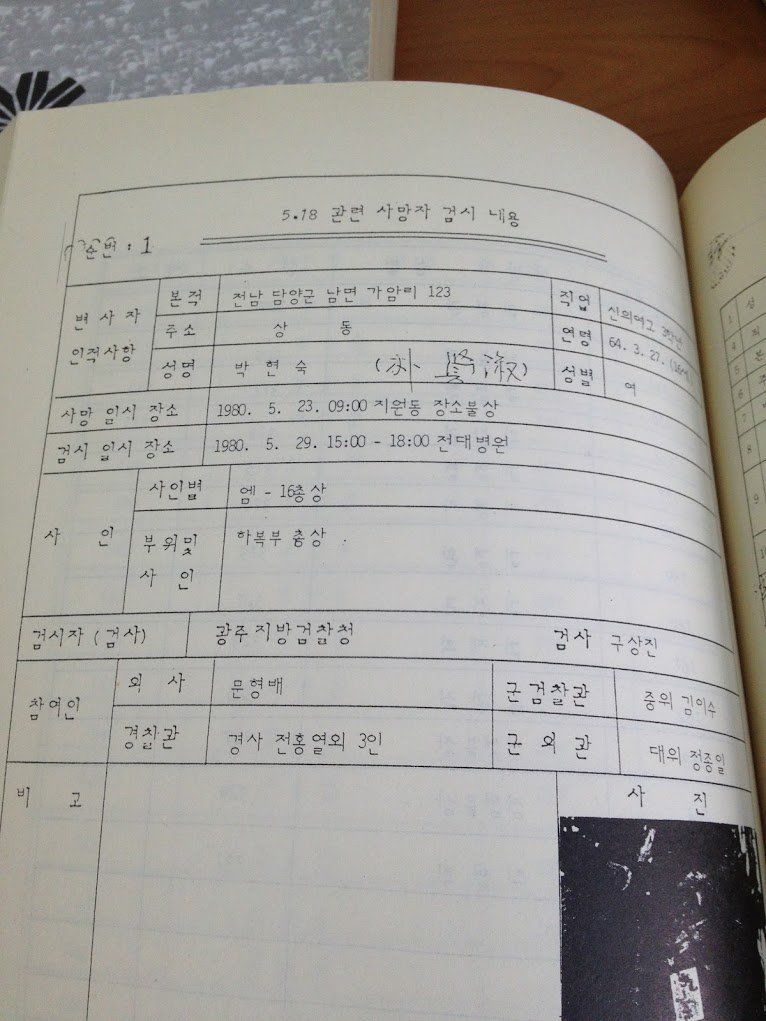 5.18 관련 사망자 검시 내용
순번 : 1
변 사 자 인적사항
본적 전남 담양군 남면 가암리 123 직업 신의여고 3학년
주소 상 동 연명 64. 3. 27. (16세)
성명 박 현 숙 (朴 賢 淑) 성별 여
사망 일시 장소 1980. 5. 23. 09:00 지원동 장소불상
검시 일시 장소 1980. 5. 29. 15:00 - 18:00 전대병원
사 인
사인별 엠 - 16총상
부위및 사 인 하복부 총상
검시자 (검사) 광주지방검찰청 검사 구상진
참여인
의 사 문형배 군검찰관 중위 김이수
경찰관 경사 전홍열외 3인 군 의 관 대위 정종일
비 고
사 진
1 성
4 직
5 본
6 주
7
8
9